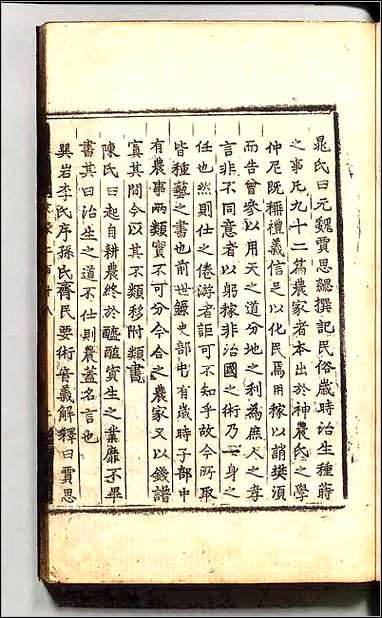 晁氏曰元魏賈思勰撰記民俗歲時治生種蒔
之事凡九十二篇農家者本出於神農氏之學
仲尼既稱禮義信足以化民焉用稼以誚樊須
而告曾參以用天之道分地之利為庶人之孝
言非不同意者以躬稼非治國之術乃一身之
任也然則仕之倦游者詎可不知乎故今所取
皆種藝之書也前世錄史部中有歲時子部中
有農事兩類實不可分今合之農家又以錢譜
寘其間今以其不類移附類書
陳氏曰起自耕農終於醯醢資生之業靡不畢
書其曰治生之道不仕則農蓋名言也
巽岩李氏序孫氏齊民要術音義解釋曰賈思